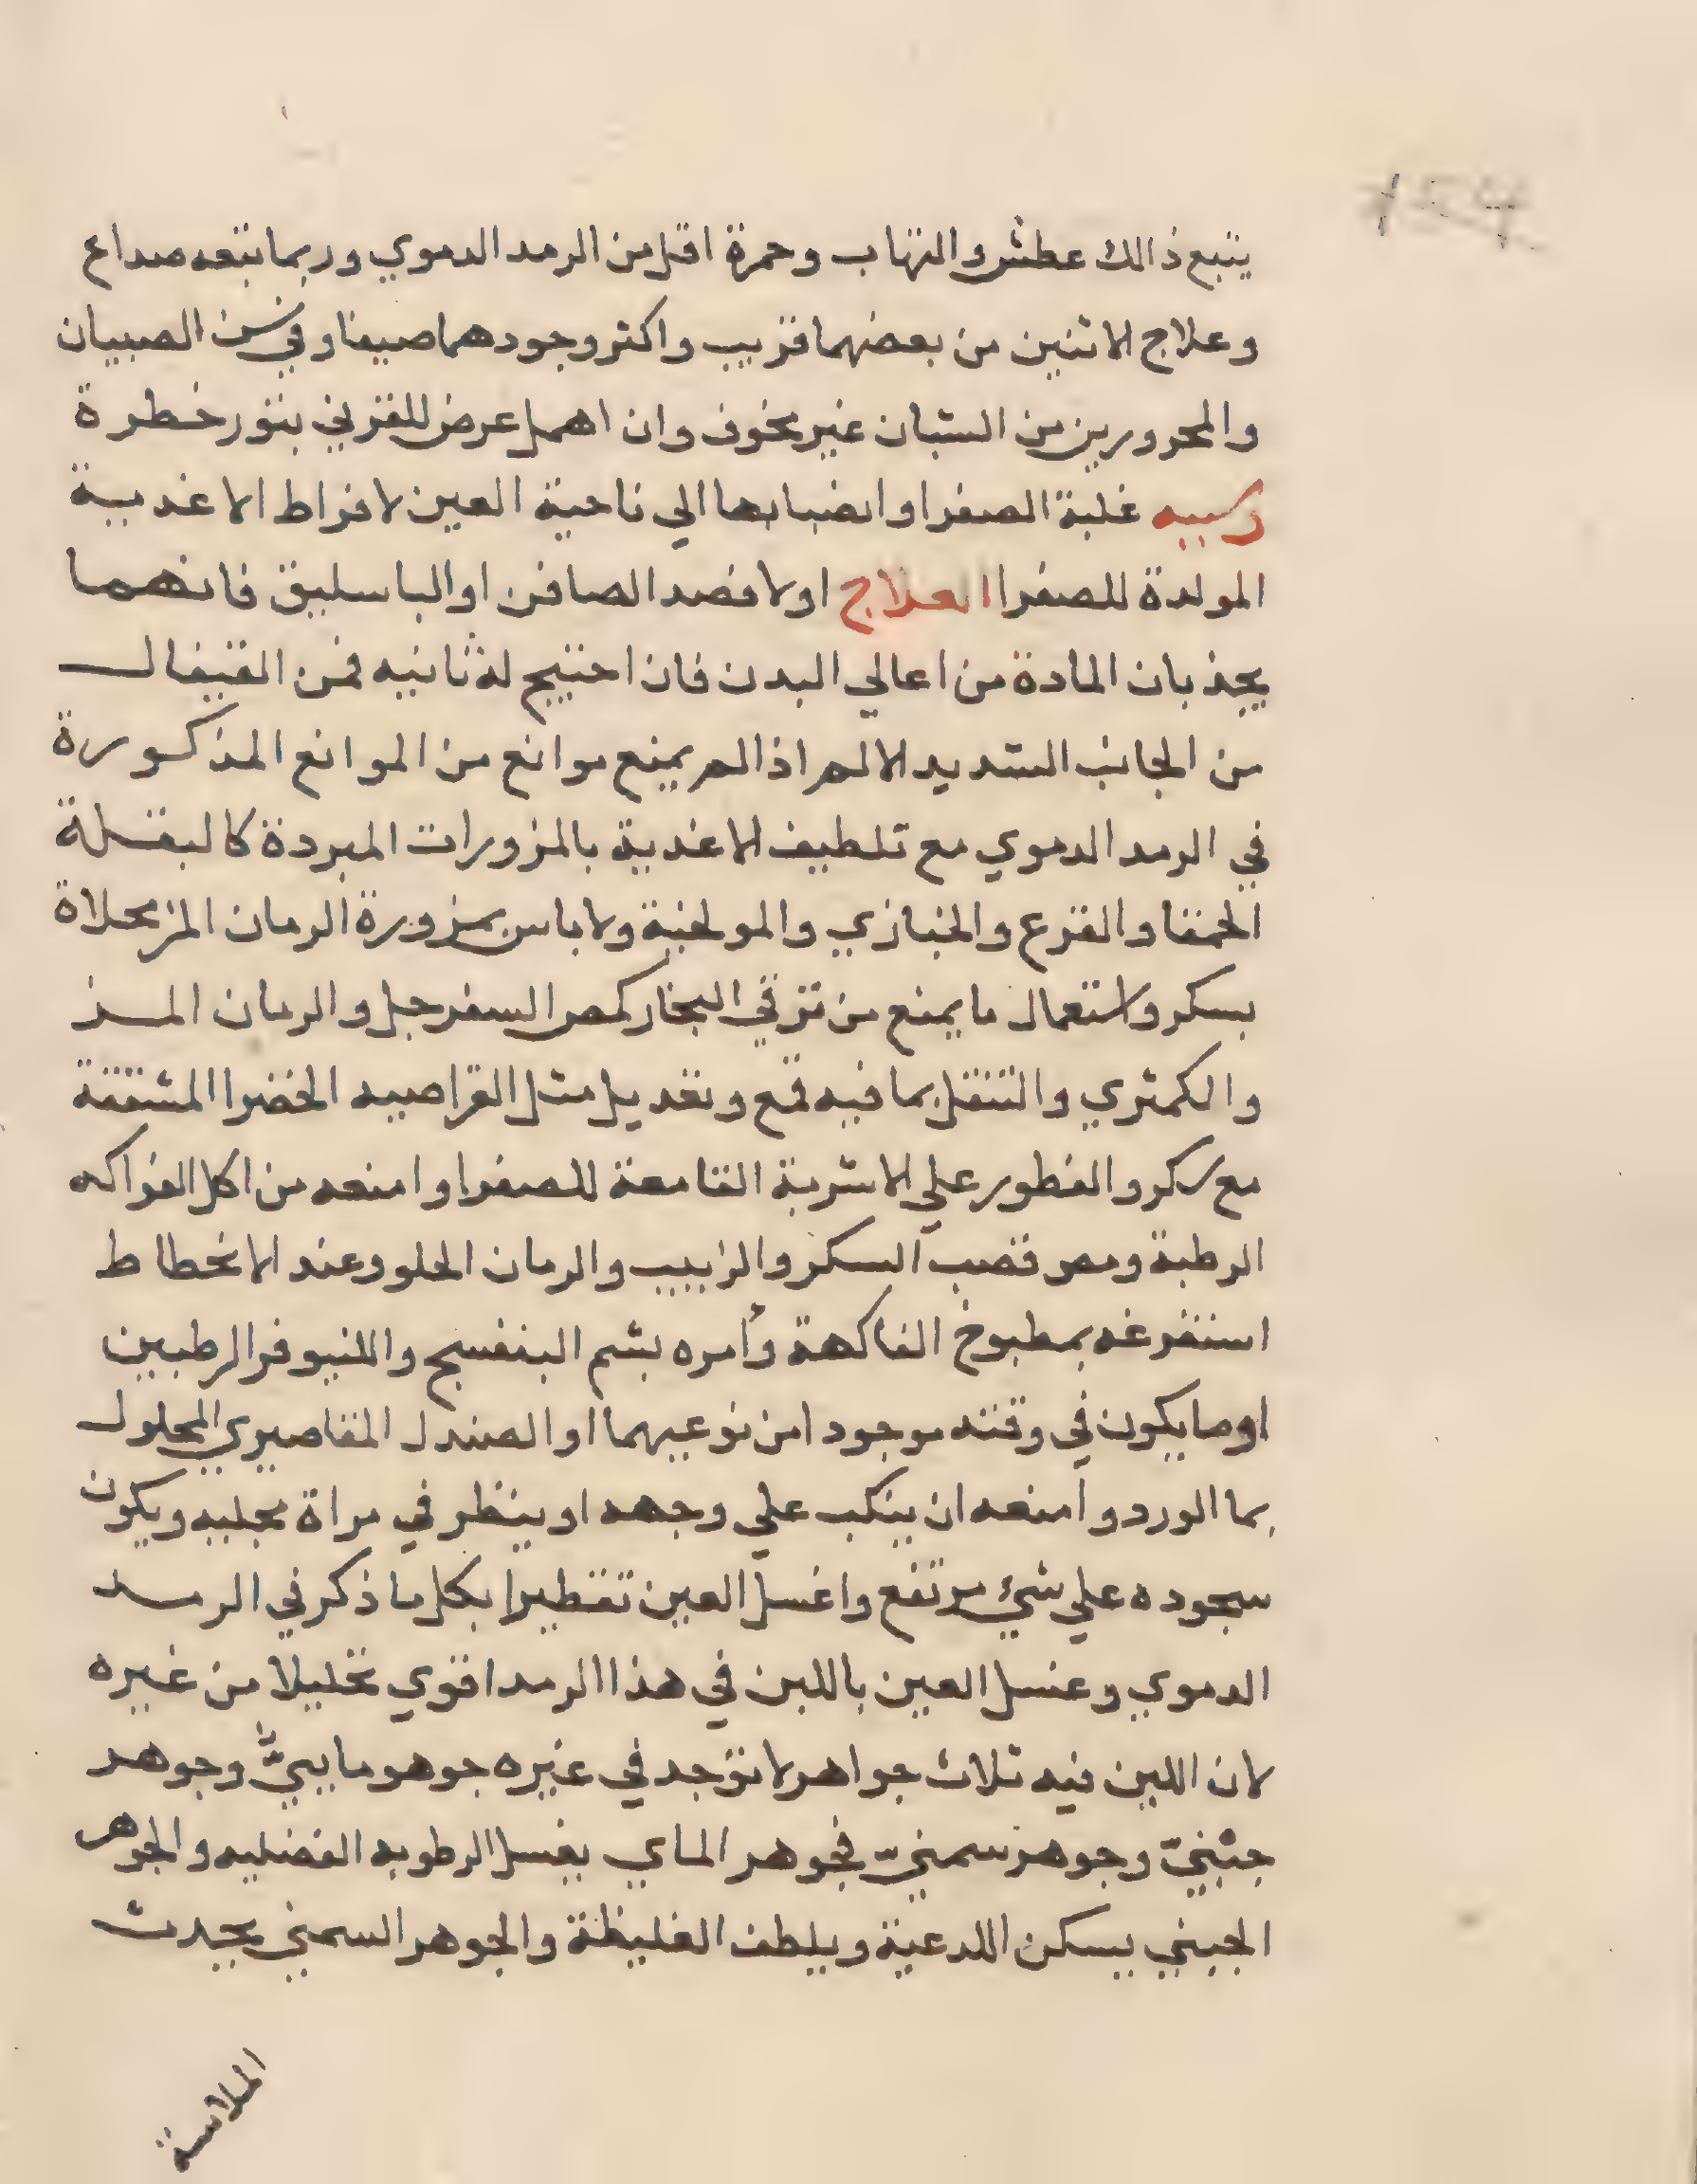 يتبع ذالك عطش والتهاب وحمرة اقل من الرمد الدموي وربما تبعه صداع
وعلاج الاثنين من بعضهما قريب واكثر وجودهما صيفا وفي سن الصبيان
والمحرورين من الشبان غير مخوف وان اهمل عرض للقرني بثور خطرة
وسببه غلبة الصفرا وانضبابها الي ناحية العين لافراط الاغدية
المولدة للصفرا العلاج اولا فصد الصافن او الباسليق فانهما
يجذبان المادة من اعالي البدن فان احتيج له ثانيه فمن القيفال
من الجانب الشديد الالم اذا لم يمنع موانع من الموانع المذكورة
في الرمد الدموي مع تلطيف الاغدية بالمزورات المبردة كالبقلة
الحمقا والقرع والخبازي والمولخية ولا باس بمزورة الرمان المز محلاة
بسكر واستعمال ما يمنع من ترقي البخار كمص السفرجل والرمان المز
والكمثري والتنقل بما فيه قمع وتعديل مثل القراصيه الخضرا المشققة
مع سكر والفطور علي الاشربة القامعة للصفرا وامنعه من اكل الفواكه
الرطبة ومص قصب السكر والزبيب والرمان الحلو وعند الانحطاط
استفرغه بمطبوخ الفاكهة وأمره بشم البنفسج واللنيوفر الرطبين
او ما يكون في وقته موجود امن نوعيهما او الصندل المقاصيري المحلول
بما الورد وامنعه ان ينكب علي وجهه او ينظر في مراة مجليه ويكون
سجوده علي شيء مرتفع واغسل العين تقطيرا بكل ما ذكر في الرمد
الدموي وغسل العين باللبن في هذا الرمد اقوي تحليلا من غيره
لان اللبن فيه ثلاث جواهر لا توجد في غيره جوهر مايي وجوهر
جبنيّ وجوهر سمنيّ فجوهر الماي يغسل الرطوبه الفضليه والجوهر
الجبني يسكن اللدعية ويلطف الغليظة والجوهر السمني يحدث
الملاسة